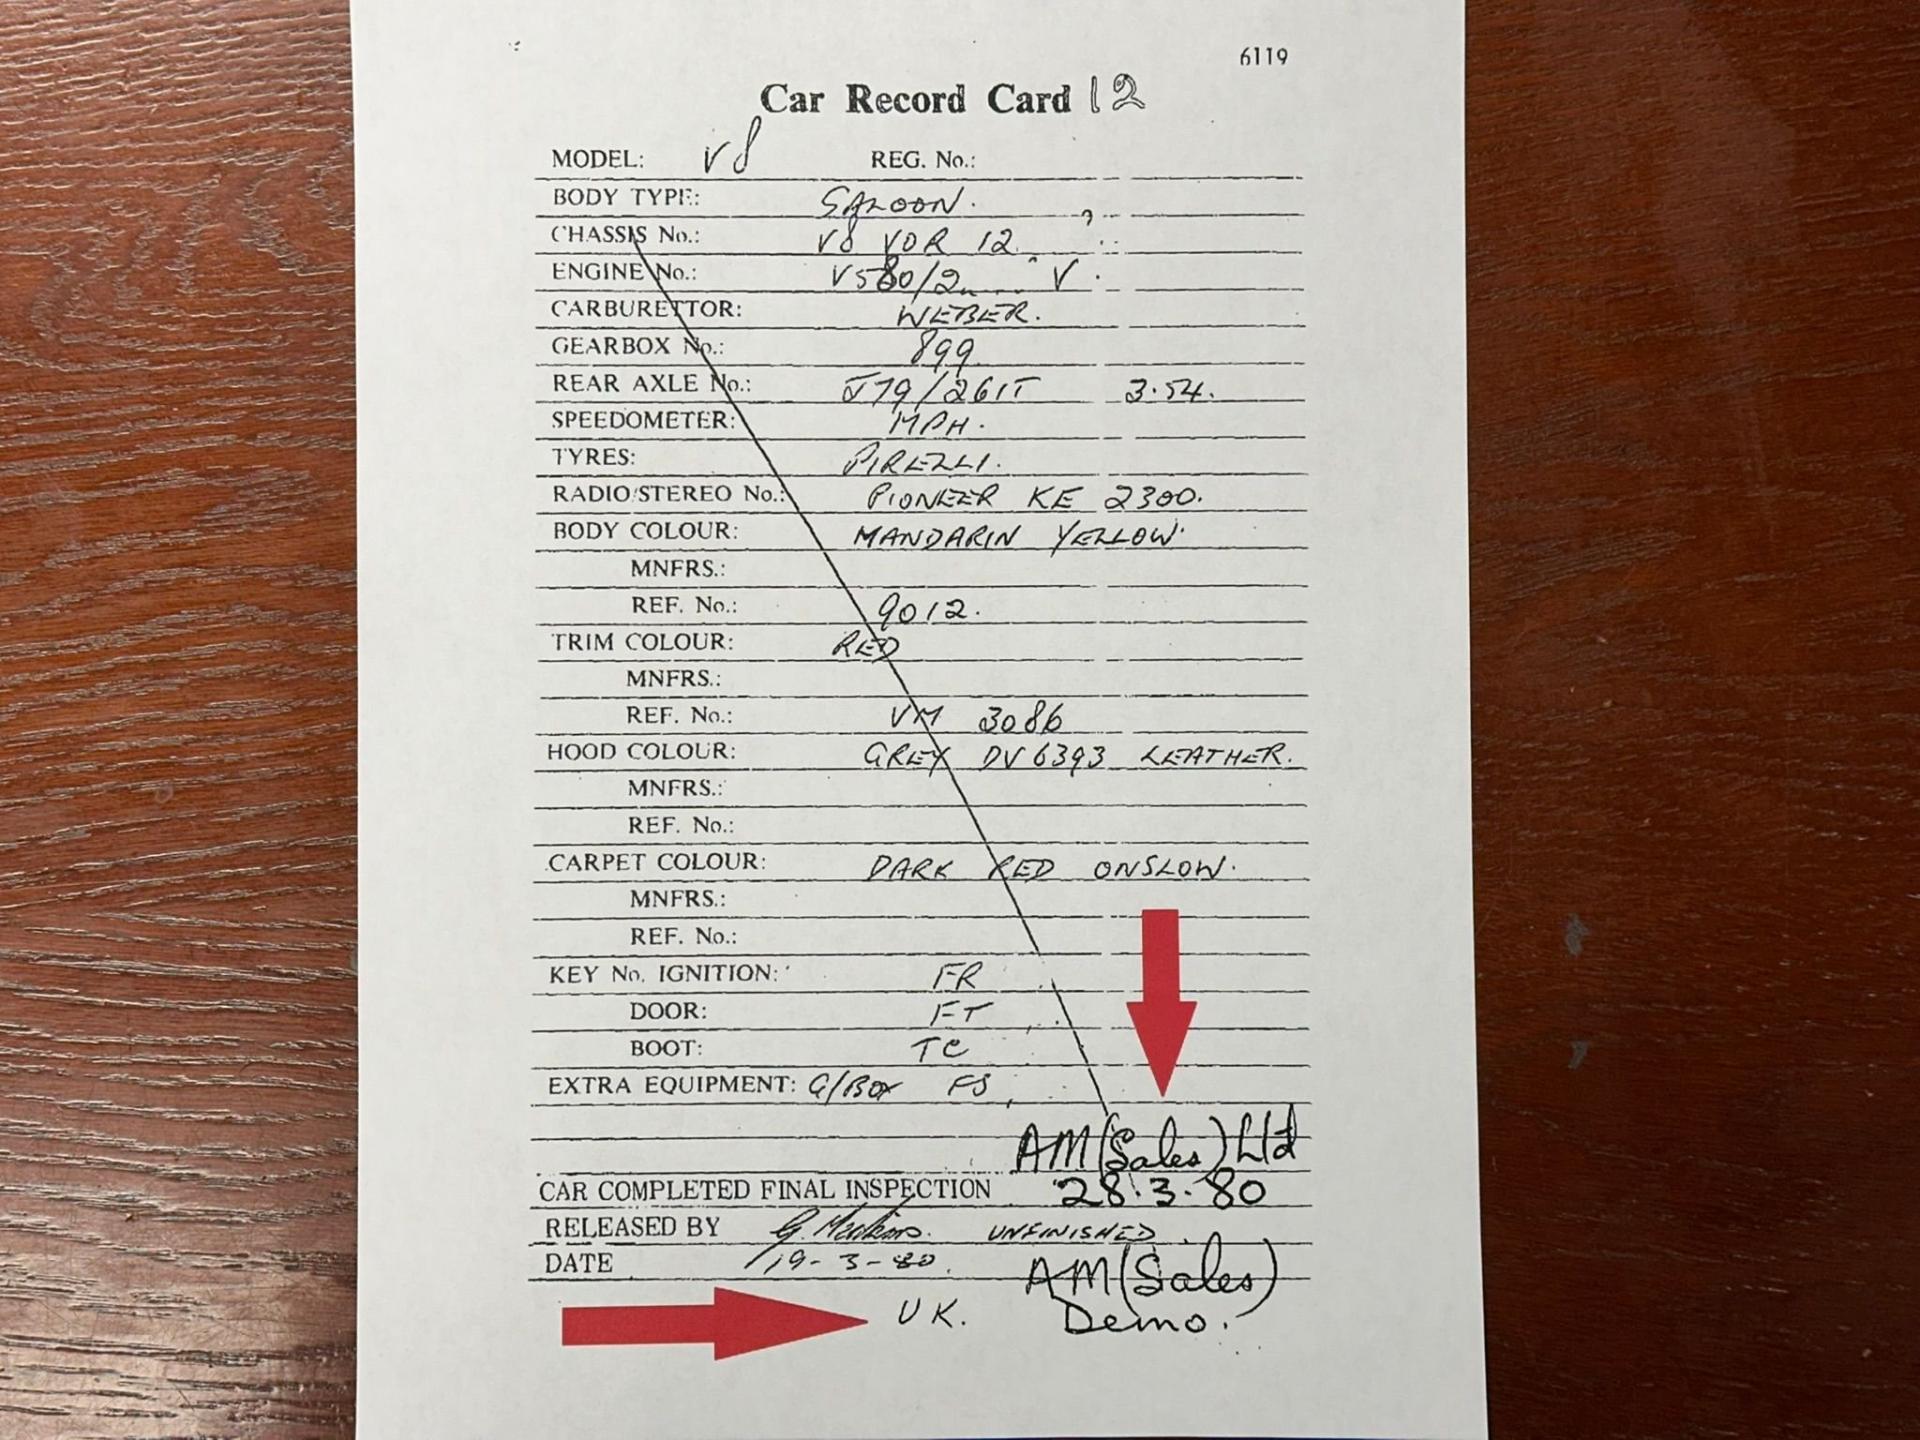 6119
Car Record Card 12
MODEL: V8 REG. No.:
BODY TYPE: SALOON.
CHASSIS No.: V8 VOR 12
ENGINE No.: V580/2 V
CARBURETTOR: WEBER.
GEARBOX No.: 899
REAR AXLE No.: J79/261T 3.54.
SPEEDOMETER: MPH.
TYRES: PIRELLI.
RADIO/STEREO No.: PIONEER KE 2300.
BODY COLOUR: MANDARIN YELLOW.
MNFRS.:
REF. No.: 9012.
TRIM COLOUR: RED
MNFRS.:
REF. No.: VM 3086
HOOD COLOUR: GREY DV6393 LEATHER.
MNFRS.:
REF. No.:
CARPET COLOUR: DARK RED ONSLOW.
MNFRS.:
REF. No.:
KEY No. IGNITION: FR
DOOR: FT
BOOT: TC
EXTRA EQUIPMENT: G/BOX FS
AM(Sales) Ltd
CAR COMPLETED FINAL INSPECTION 28.3.80
RELEASED BY UNFINISHED
DATE 19-3-80. AM(Sales)
UK. Demo.